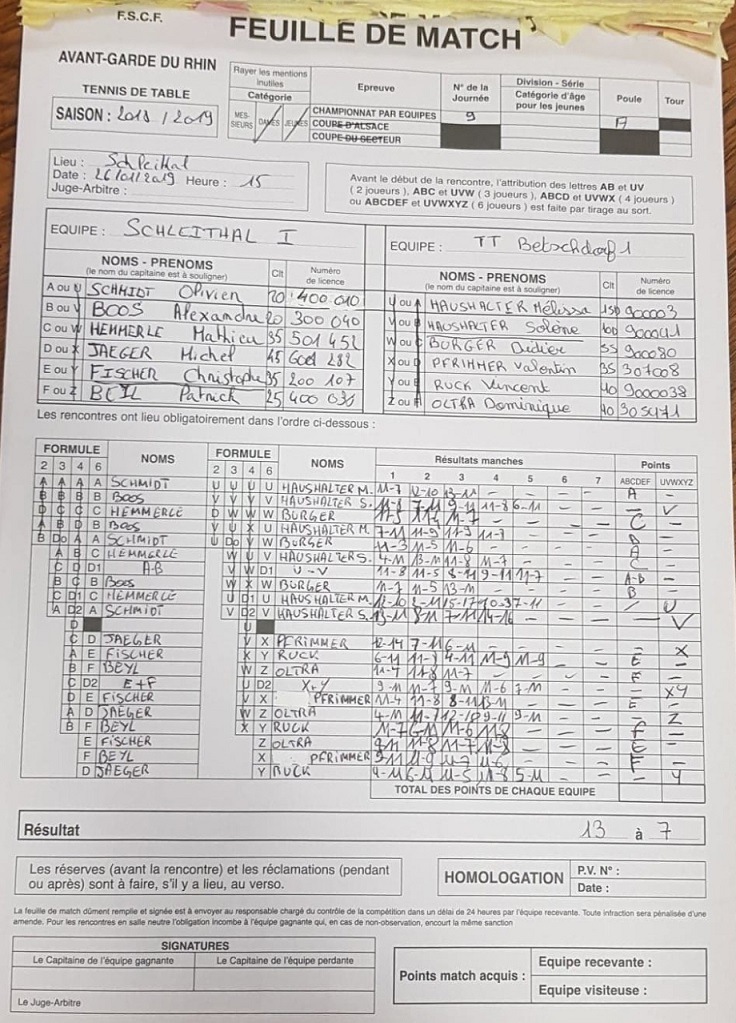 F.S.C.F.
FEUILLE DE MATCH
AVANT-GARDE DU RHIN
TENNIS DE TABLE
SAISON : 2018 / 2019
Rayer les mentions inutiles
Catégorie
MESSIEURS DAMES JEUNES
Epreuve
CHAMPIONNAT PAR EQUIPES
COUPE D'ALSACE
COUPE DU SECTEUR
N° de la Journée
9
Division - Série
Catégorie d'âge pour les jeunes
Poule
A
Tour
Lieu : Schleithal
Date : 26/01/2019 Heure : 15
Juge-Arbitre :
Avant le début de la rencontre, l'attribution des lettres AB et UV
( 2 joueurs ), ABC et UVW ( 3 joueurs ), ABCD et UVWX ( 4 joueurs )
ou ABCDEF et UVWXYZ ( 6 joueurs ) est faite par tirage au sort.
EQUIPE : SCHLEITHAL I
NOMS - PRENOMS
(le nom du capitaine est à souligner)
Clt
Numéro de licence
A ou U SCHMIDT Olivien 20 400 010
B ou V BOOS Alexandre 20 300 040
C ou W HEMMERLE Mathieu 35 501 452
D ou X JAEGER Michel 45
E ou Y FISCHER Christophe 35 200 107
F ou Z BEIL Patrick 25 400 035
EQUIPE : TT Betschdorf 1
NOMS - PRENOMS
(le nom du capitaine est à souligner)
Clt
Numéro de licence
U ou A HAUSHALTER Mélissa 900003
V ou B HAUSHALTER Solène 900041
W ou C BURGER Didier 55 900080
X ou D PFRIMMER Valentin 35 307008
Y ou E RUCK Vincent 40 9000038
Z ou F OLTRA Dominique 40 305471
Les rencontres ont lieu obligatoirement dans l'ordre ci-dessous :
FORMULE
2 3 4 6
NOMS
FORMULE
2 3 4 6
NOMS
Résultats manches
1 2 3 4 5 6 7
Points
ABCDEF UVWXYZ
A A A A SCHMIDT U U U U HAUSHALTER M. 11-7 12-10 13-11 - - - - A -
B B B B BOOS V V V V HAUSHALTER S. 11-8 6-11 - - - V
D C C C HEMMERLE D W W W BURGER 11-7 - - - - C -
A B D B BOOS V U X U HAUSHALTER M. 7-11 11-9 11-3 11-7 - - -
B Do A A SCHMIDT U Do V W BURGER 11-3 11-5 11-6 - - - - A -
A B C HEMMERLE W U V HAUSHALTER S. 4-11 13-11 11-8 11-7 - - - C -
C D D1 A-B V W D1 U-V 11-8 11-5 8-11 9-11 11-7 - - A-B -
B C B BOOS W X W BURGER 11-7 11-5 13-11 - - - - B -
C D1 C HEMMERLE U D1 U HAUSHALTER M. 12-10 15-17 7-11 - - / U
A D2 A SCHMIDT V D2 V HAUSHALTER S. 13-11 7-11 14-16 - - - - V
D U
C D JAEGER V X PFRIMMER 12-14 7-11 6-11 - - - - - X
A E FISCHER X Y RUCK 6-11 11-8 4-11 11-9 11-9 - - E -
B F BEYL W Z OLTRA 11-4 11-8 11-7 - - - - F -
C D2 E+F U D2 X-Y 9-11 11-7 9-11 11-6 7-11 - - - XY
D E FISCHER V X PFRIMMER 11-4 11-8 8-11 13-11 - - - E -
A D JAEGER W Z OLTRA 4-11 11-7 12-10 9-11 9-11 - - - Z
B F BEYL X Y RUCK 11-7 6-11 11-6 11-8 - - - F -
E FISCHER Z OLTRA 9-11 11-8 11-7 11-8 - - - E -
F BEYL X PFRIMMER 9-11 11-9 11-7 11-6 - - - F -
D JAEGER Y RUCK 9-11 6-11 11-5 11-8 5-11 - - - Y
TOTAL DES POINTS DE CHAQUE EQUIPE
Résultat 13 à 7
Les réserves (avant la rencontre) et les réclamations (pendant
ou après) sont à faire, s'il y a lieu, au verso.
HOMOLOGATION
P.V. N° :
Date :
La feuille de match dûment remplie et signée est à envoyer au responsable chargé du contrôle de la compétition dans un délai de 24 heures par l'équipe recevante. Toute infraction sera pénalisée d'une
amende. Pour les rencontres en salle neutre l'obligation incombe à l'équipe gagnante qui, en cas de non-observation, encourt la même sanction
SIGNATURES
Le Capitaine de l'équipe gagnante
Le Capitaine de l'équipe perdante
Le Juge-Arbitre
Points match acquis :
Equipe recevante :
Equipe visiteuse :